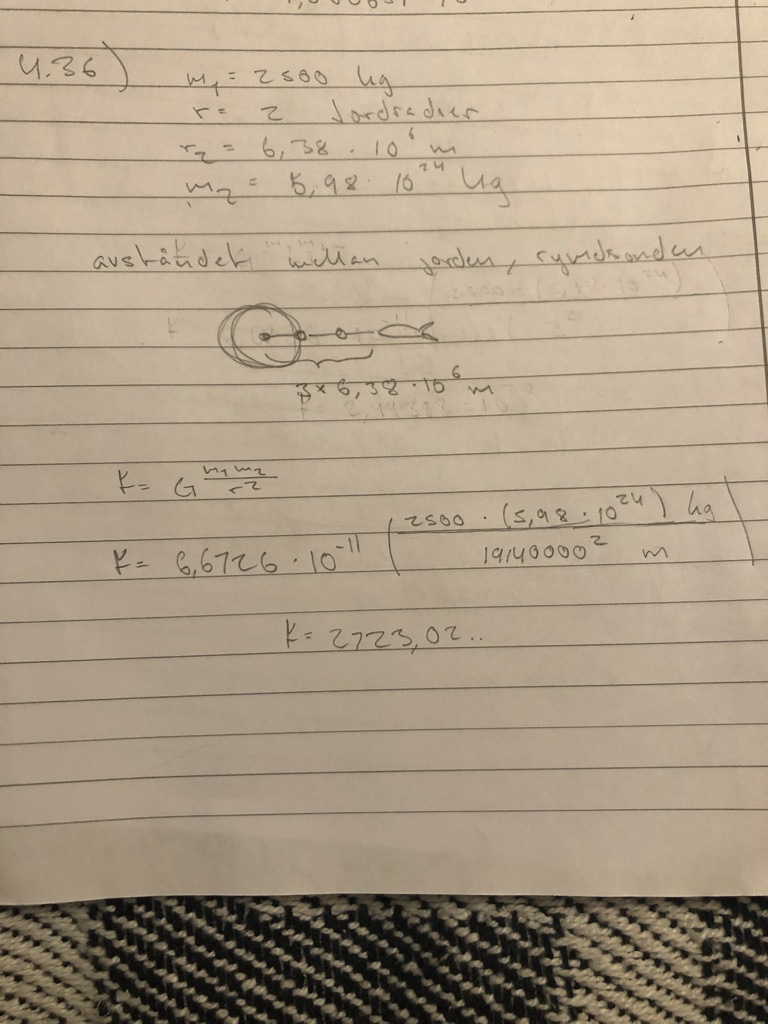 4.36) m₁ = 2500 kg
r = 2 Jordradier
r₂ = 6,38 · 10⁶ m
m₂ = 5,98 · 10²⁴ kg
avståndet mellan jorden, rymdsonden
3 × 6,38 · 10⁶ m
F = G m₁m₂ / r²
F = 6,6726 · 10⁻¹¹ ( 2500 · (5,98 · 10²⁴) kg / 19140000² m )
F = 2723,02..